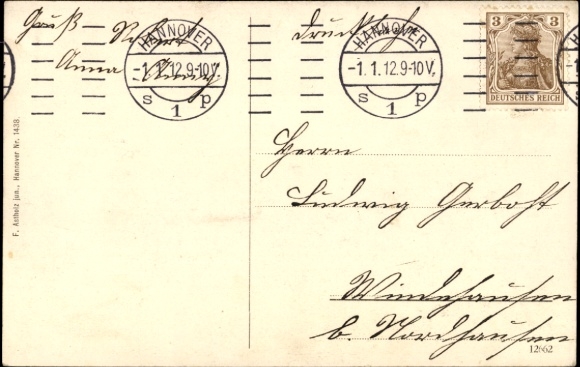 Gruß
Robert
Anna
Drucksache
HANNOVER
-1.1.12.9-10V.
s 1 p
HANNOVER
-1.1.12.9-10V.
s 1 p
3 3
DEUTSCHES REICH
Herrn
Ludwig Gerboht
Windehausen
b. Nordhausen
12662
F. Astholz jun., Hannover Nr. 1438.